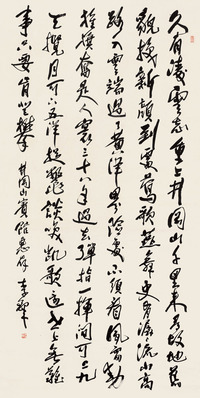 久有凌雲志重上井岡山千里来尋故地舊
貌換新顔到處鶯歌燕舞更有潺潺流水高
路入雲端過了黄洋界險處不須看風雷動
旌旗奮是人寰三十八年過去彈指一揮間可上九
天攬月可下五洋捉鱉談笑凱歌還世上無難
事只要肯登攀 井岡山賓館惠存 李鐸